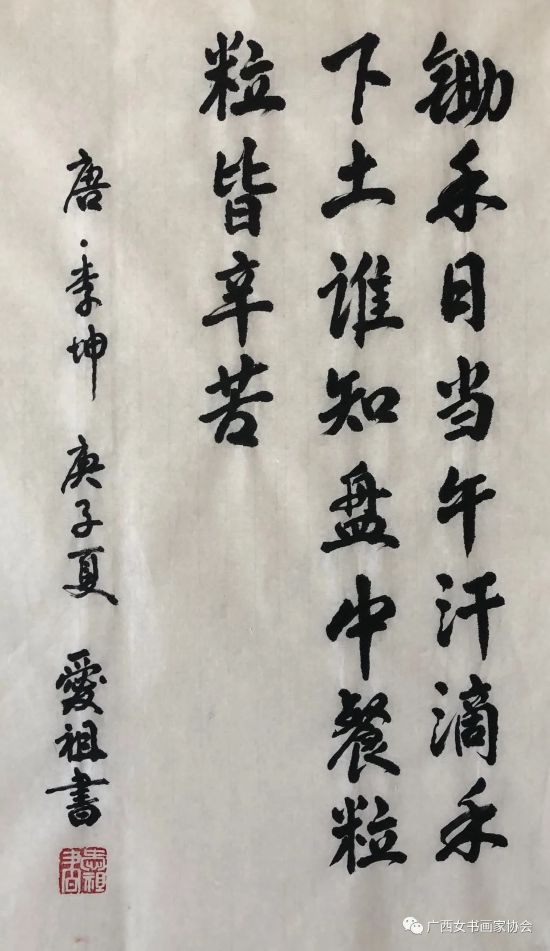 锄禾日当午汗滴禾
下土谁知盘中餐粒
粒皆辛苦
唐·李坤 庚子夏 爱祖書
爱祖書
广西女书画家协会